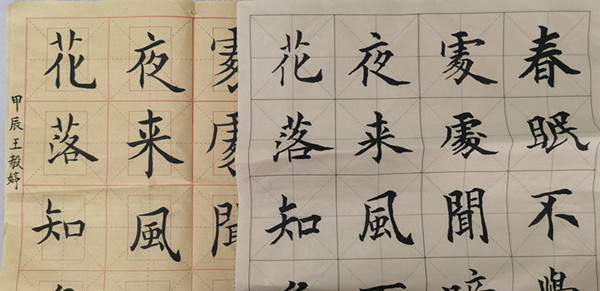 春眠不
䖏處聞
夜来風
花落知
聞
夜来風
花落知
甲辰王毅婷